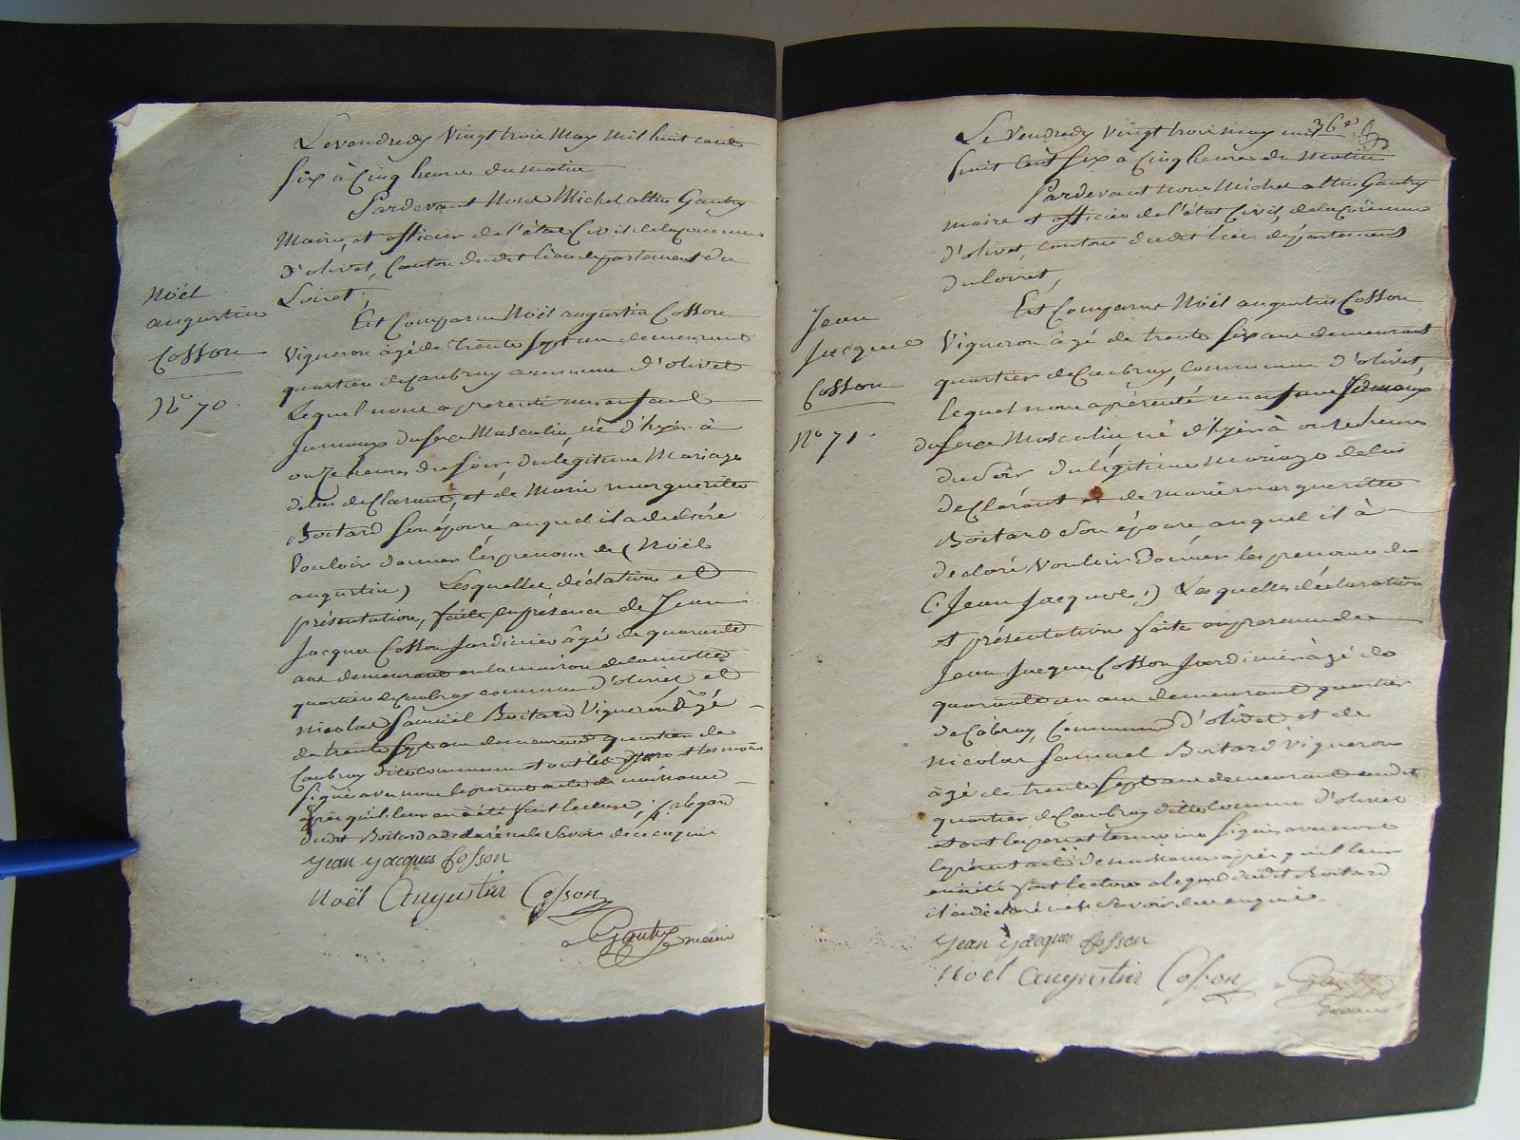 Le vendredy vingt trois may mil huit cent
six à cinq heures du matin
Pardevant nous Michel altin Gautry
Maire, et officier de l'état Civil de la commune
d'olivet, Canton dudit lieu département du
Loiret,
Noël
augustin
Cosson
N° 70
Est Comparu Noël augustin Cosson
Vigneron âgé de trente sept ans demeurant
quartier de Caubray commune d'olivet
Lequel nous a présenté un enfant
Jumeaux du sexe Masculin, né d'hyer à
onze heures du soir, du légitime Mariage
de lui déclarant, et de Marie margueritte
Boitard son épouse, auquel il a déclaré
Vouloir donner les prenoms de (Noël
augustin) Lesquelles déclation et
présentation, faite en présence de Jean
Jacques Cosson Jardinier âgé de quarante
ans demeurant en la maison de la
quartier de Caubray commune d'olivet et
nicolas Samuel Boitard Vigneron âgé
de trente sept ans demeurant quartier de
Caubray dite commune et ont les père et témoins
signé avec nous le présent acte de naissance
après qu'il leur en a été fait lecture, à l'égard
dudit Boitard a déclaré ne le savoir de ce enquis
Jean Jacques Cosson
Noël Augustin Cosson
Gautry maire
36e
Le Vendredy vingt trois may mil
huit cent six à cinq heures du matin
Pardevant nous Michel altin Gautry
maire et officier de l'état Civil de la Commune
d'olivet, canton dudit lieu département
du loiret,
Jean
Jacques
Cosson
N° 71
Est Comparu Noël augustin Cosson
Vigneron âgé de trente six ans demeurant
quartier de Caubray, commune d'olivet,
lequel nous a présenté un enfant Jumeaux
du sexe Masculin né d'hyer à onze heures
du soir du légitime Mariage de lui
Déclarant et de marie margueritte
Boitard son épouse auquel il à
déclaré vouloir Donner les prenoms de
(Jean Jacques) Lesquelles déclaration
et présentation faite en présence de
Jean Jacques Cosson Jardinier âgé de
quarante un ans demeurant quartier
de Cobray, Commune d'olivet et de
nicolas Samuel Boitard vigneron
âgé de trente sept ans demeurant audit
quartier de Caubray ditte Commune d'olivet
et ont les père et témoins signé avec nous
le présent acte de naissance après qu'il leur
en a été fait lecture a l'égard dudit Boitard
il a déclaré ne le savoir de ce enquis.
Jean Jacques Cosson
Noël Augustin Cosson
Gautry
maire